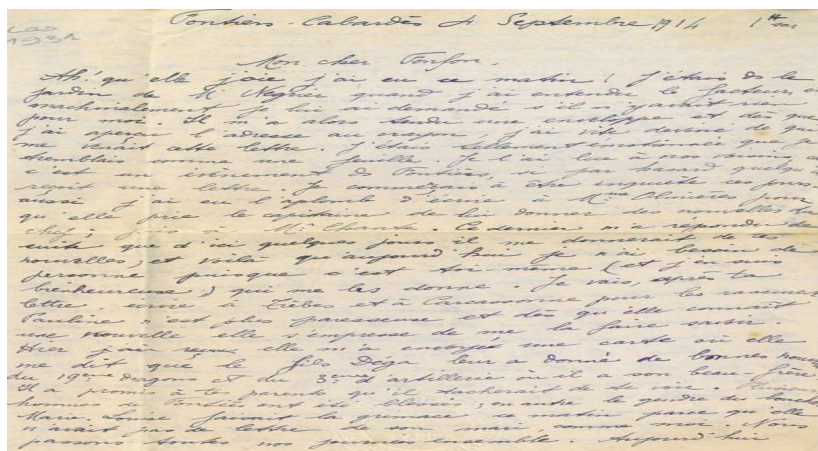 Fontiers-Cabardès 4 Septembre 1914
Mon cher Fonfon,
Ah! qu'elle joie j'ai eu ce matin! J'étais ds le
jardin de M. Negrier quand j'ai entendu le facteur, et
machinalement je lui ai demandé s'il n'y avait rien
pour moi. Il m'a alors tendu une enveloppe et dès que
j'ai aperçu l'adresse au crayon, j'ai vite deviné de qui
me venait cette lettre. J'étais tellement émotionnée que je
tremblais comme une feuille. Je l'ai lue à nos voisins
c'est un évènement ds Fontiers, si par hasard quelqu'un
reçoit une lettre. Je commençais à être inquiète ces jours-
aussi j'ai eu l'aplomb d'écrire à Mme pour
qu'elle prie le capitaine de lui donner des nouvelles du
chef, puis à M. Ce dernier m'a répondu de
suite que d'ici quelques jours il me donnerait de tes
nouvelles, et voilà qu'aujourd'hui je n'ai besoin de
personne puisque c'est toi même (et j'en suis
bienheureuse) qui me les donne. Je vais, après ta
lettre, écrire à Trèbes et à Carcassonne pour les rassurer
Pauline n'est plus paresseuse et dès qu'elle connaît
une nouvelle elle s'empresse de me la faire savoir.
Hier j'ai reçu elle m'a envoyé une carte où elle
me dit que le fils Déga leur a donné de bonnes
du 19ème dragons et du 3ème d'artillerie où il a son beau-frère
Il a promis à tes parents qu'il tacherait de te voir.
hommes Fontiers ont été blessés; en autre le gendre du
Marie-Louise faisait la grimace ce matin parce qu'elle
n'avait pas de lettre de son mari, comme moi. Nous
passons toutes nos journées ensemble. Aujourd'hui